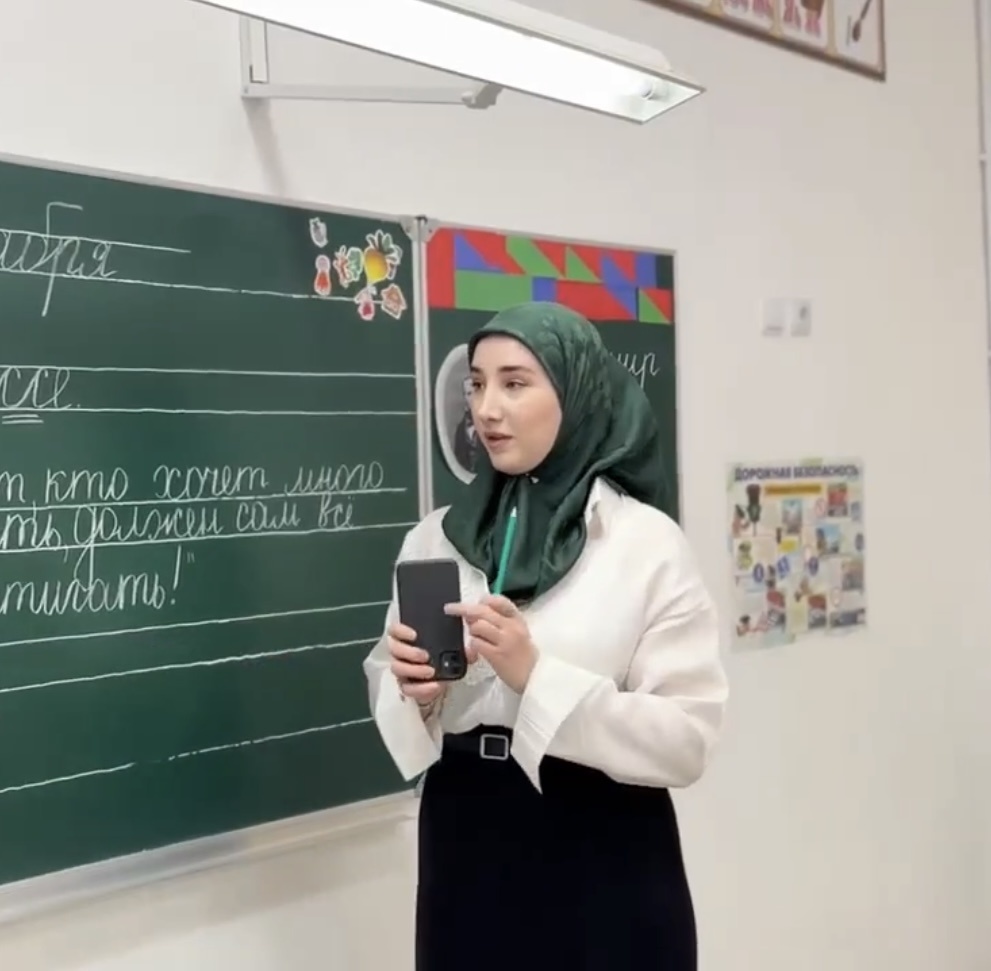 абря
ссе.
т, кто хочет много
ть, должен сам всё
тигать!"
мир
ДОРОЖНАЯ БЕЗОПАСНОСТЬ